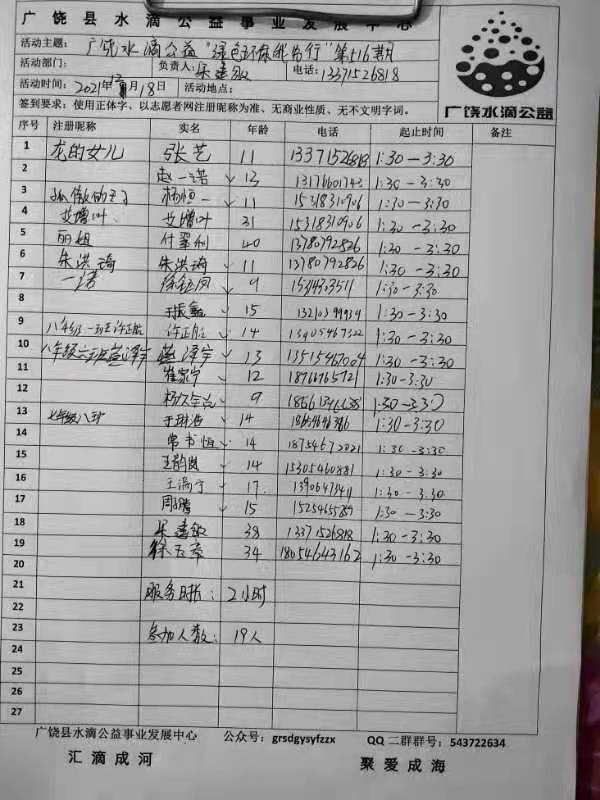 广饶县水滴公益事业发展中心
活动主题：广饶水滴公益"绿色环保我先行"第516期
活动部门： 负责人：吴喜敏 电话：13371526818
活动时间：2021年12月18日 活动地点：
签到要求：使用正体字、以志愿者网注册昵称为准、无商业性质、无不文明字词。
广饶水滴公益
序号 注册昵称 实名 年龄 电话 起止时间 备注
1 龙的女儿 张艺 11 13371526818 1:30—3:30
2 赵一诺 13 13176601743 1:30—3:30
3 杨恒一 11 15318310906 1:30—3:30
4 艾增叶 艾增叶 31 15318310906 1:30—3:30
5 丽姐 付翠利 40 13780792826 1:30—3:30
6 朱洪琦 朱洪琦 11 13780792826 1:30—3:30
7 一诺 9 1:30—3:30
8 15 13210399934 1:30—3:30
9 许正胜 14 13905467322 1:30—3:30
10 泽宇 13 13515467004 1:30—3:30
11 崔家宁 12 18766765721 1:30—3:30
12 9 1:30—3:30
13 七年级八班 于琳浩 14 1:30—3:30
14 常书恒 14 18754672021 1:30—3:30
15 王韵岚 14 15305460881 1:30—3:30
16 17 1:30—3:30
17 周腾 15 15254655789 1:30—3:30
18 吴喜敏 38 13371526818 1:30—3:30
19 徐玉章 34 18054643162 1:30—3:30
20
21 服务时长：2小时
22
23 参加人数：19人
24
25
26
27
广饶县水滴公益事业发展中心 公众号：grsdgysyfzzx QQ二群群号：543722634
汇滴成河 聚爱成海